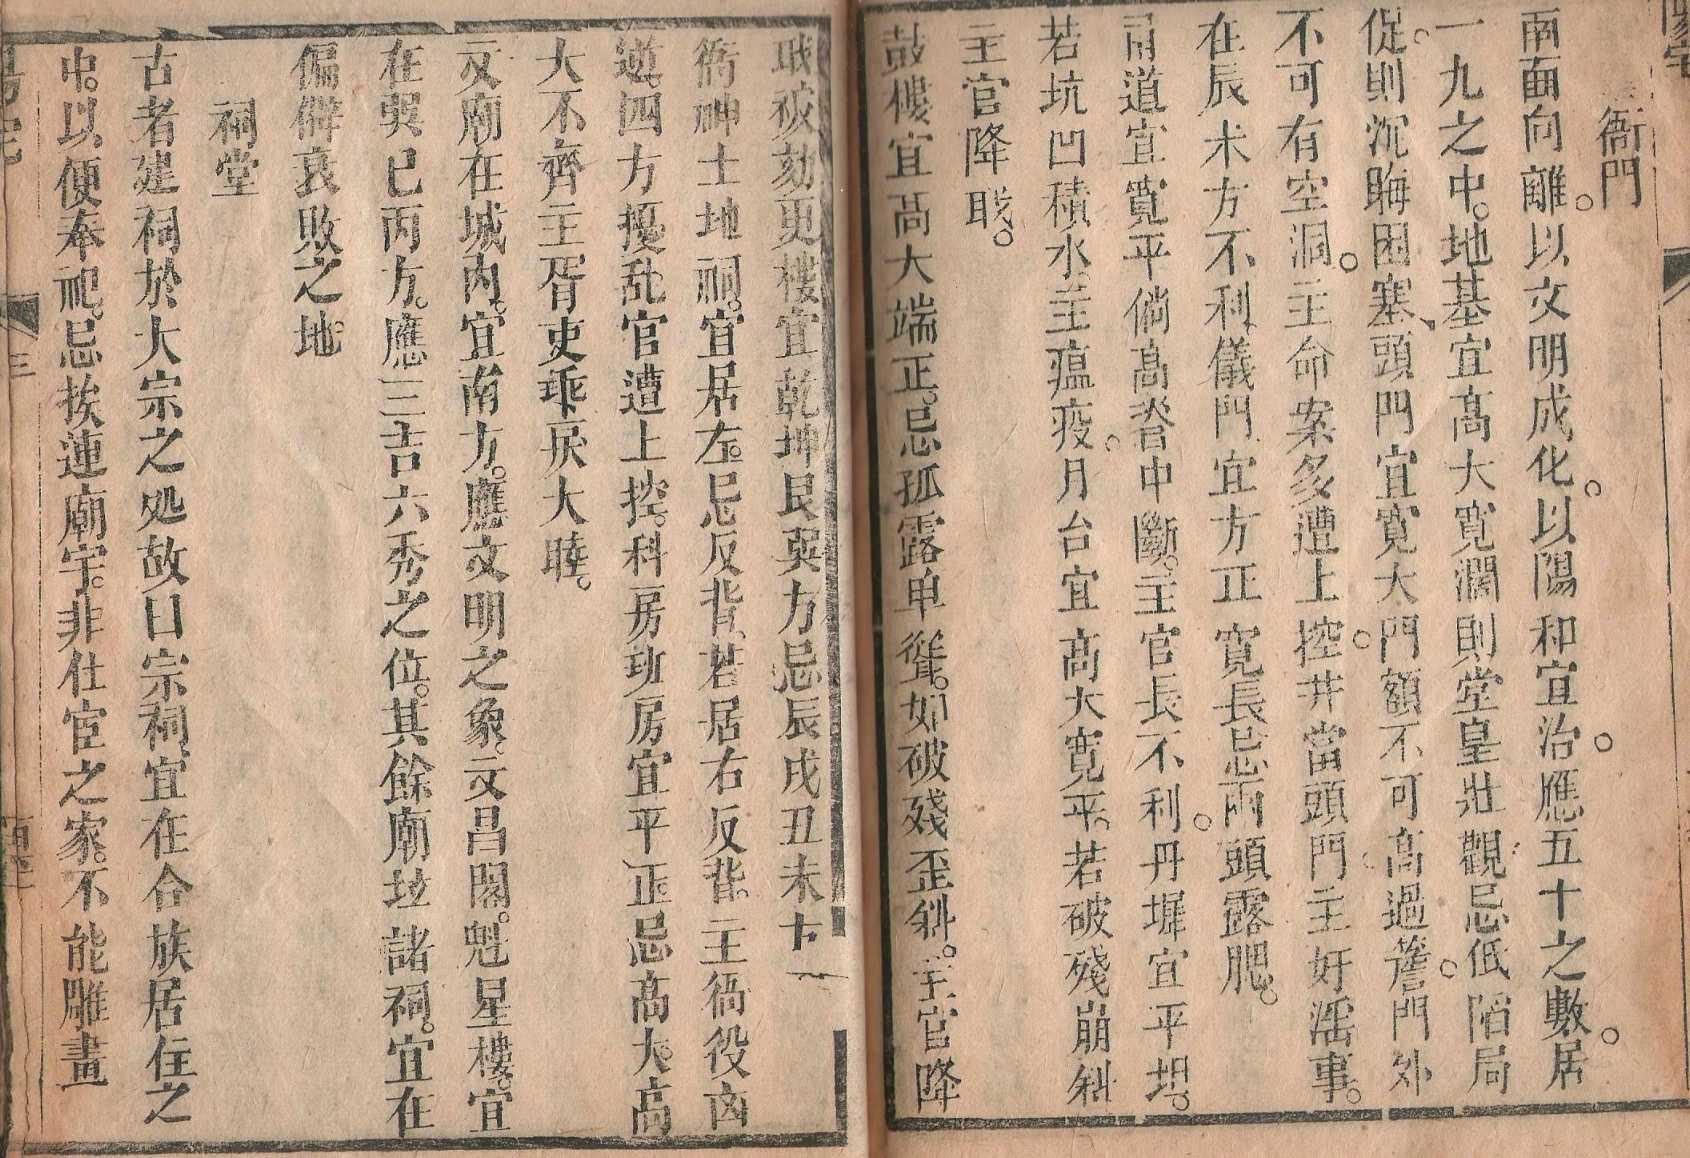 衙門
南面向離。以文明成化。以陽和宣治。應五十之數。居
一九之中。地基宜高大寬濶則堂皇壯觀忌低陷局
促。則沉晦困塞、頭門宜寬大門額不可高過簷。門外
不可有空洞。主命案多遭上控。井當頭門主奸淫事。
在辰未方不利。儀門宜方正寬長忌兩頭露肥。
甬道宜寬平倘高脊中斷。主官長不利。丹墀宜平坦。
若坑凹積水主瘟疫。月台宜高大寬平。若破殘崩斜
主官降戝。
鼓樓宜高大端正。忌孤露单聳。如破殘歪斜。主官降
戝被劾更樓宜乾坤艮巽方忌辰戌丑未十一
衙神土地祠。宜居左。忌反背、若居右反背。主衙役凶
逆。四方擾乱官遭上控。科房功房宜平正忌高大。高
大不齊主胥吏乖戾大曉。
文廟在城內。宜南方。應文明之象。文昌閣。魁星樓。宜
在巽巳丙方。應三吉六秀之位。其餘廟坛諸祠。宜在
偏僻衰敗之地
祠堂
古者建祠於大宗之处故曰宗祠宜在合族居住之
中。以便奉祀。忌挨連廟宇。非仕宦之家。不能雕畫
三